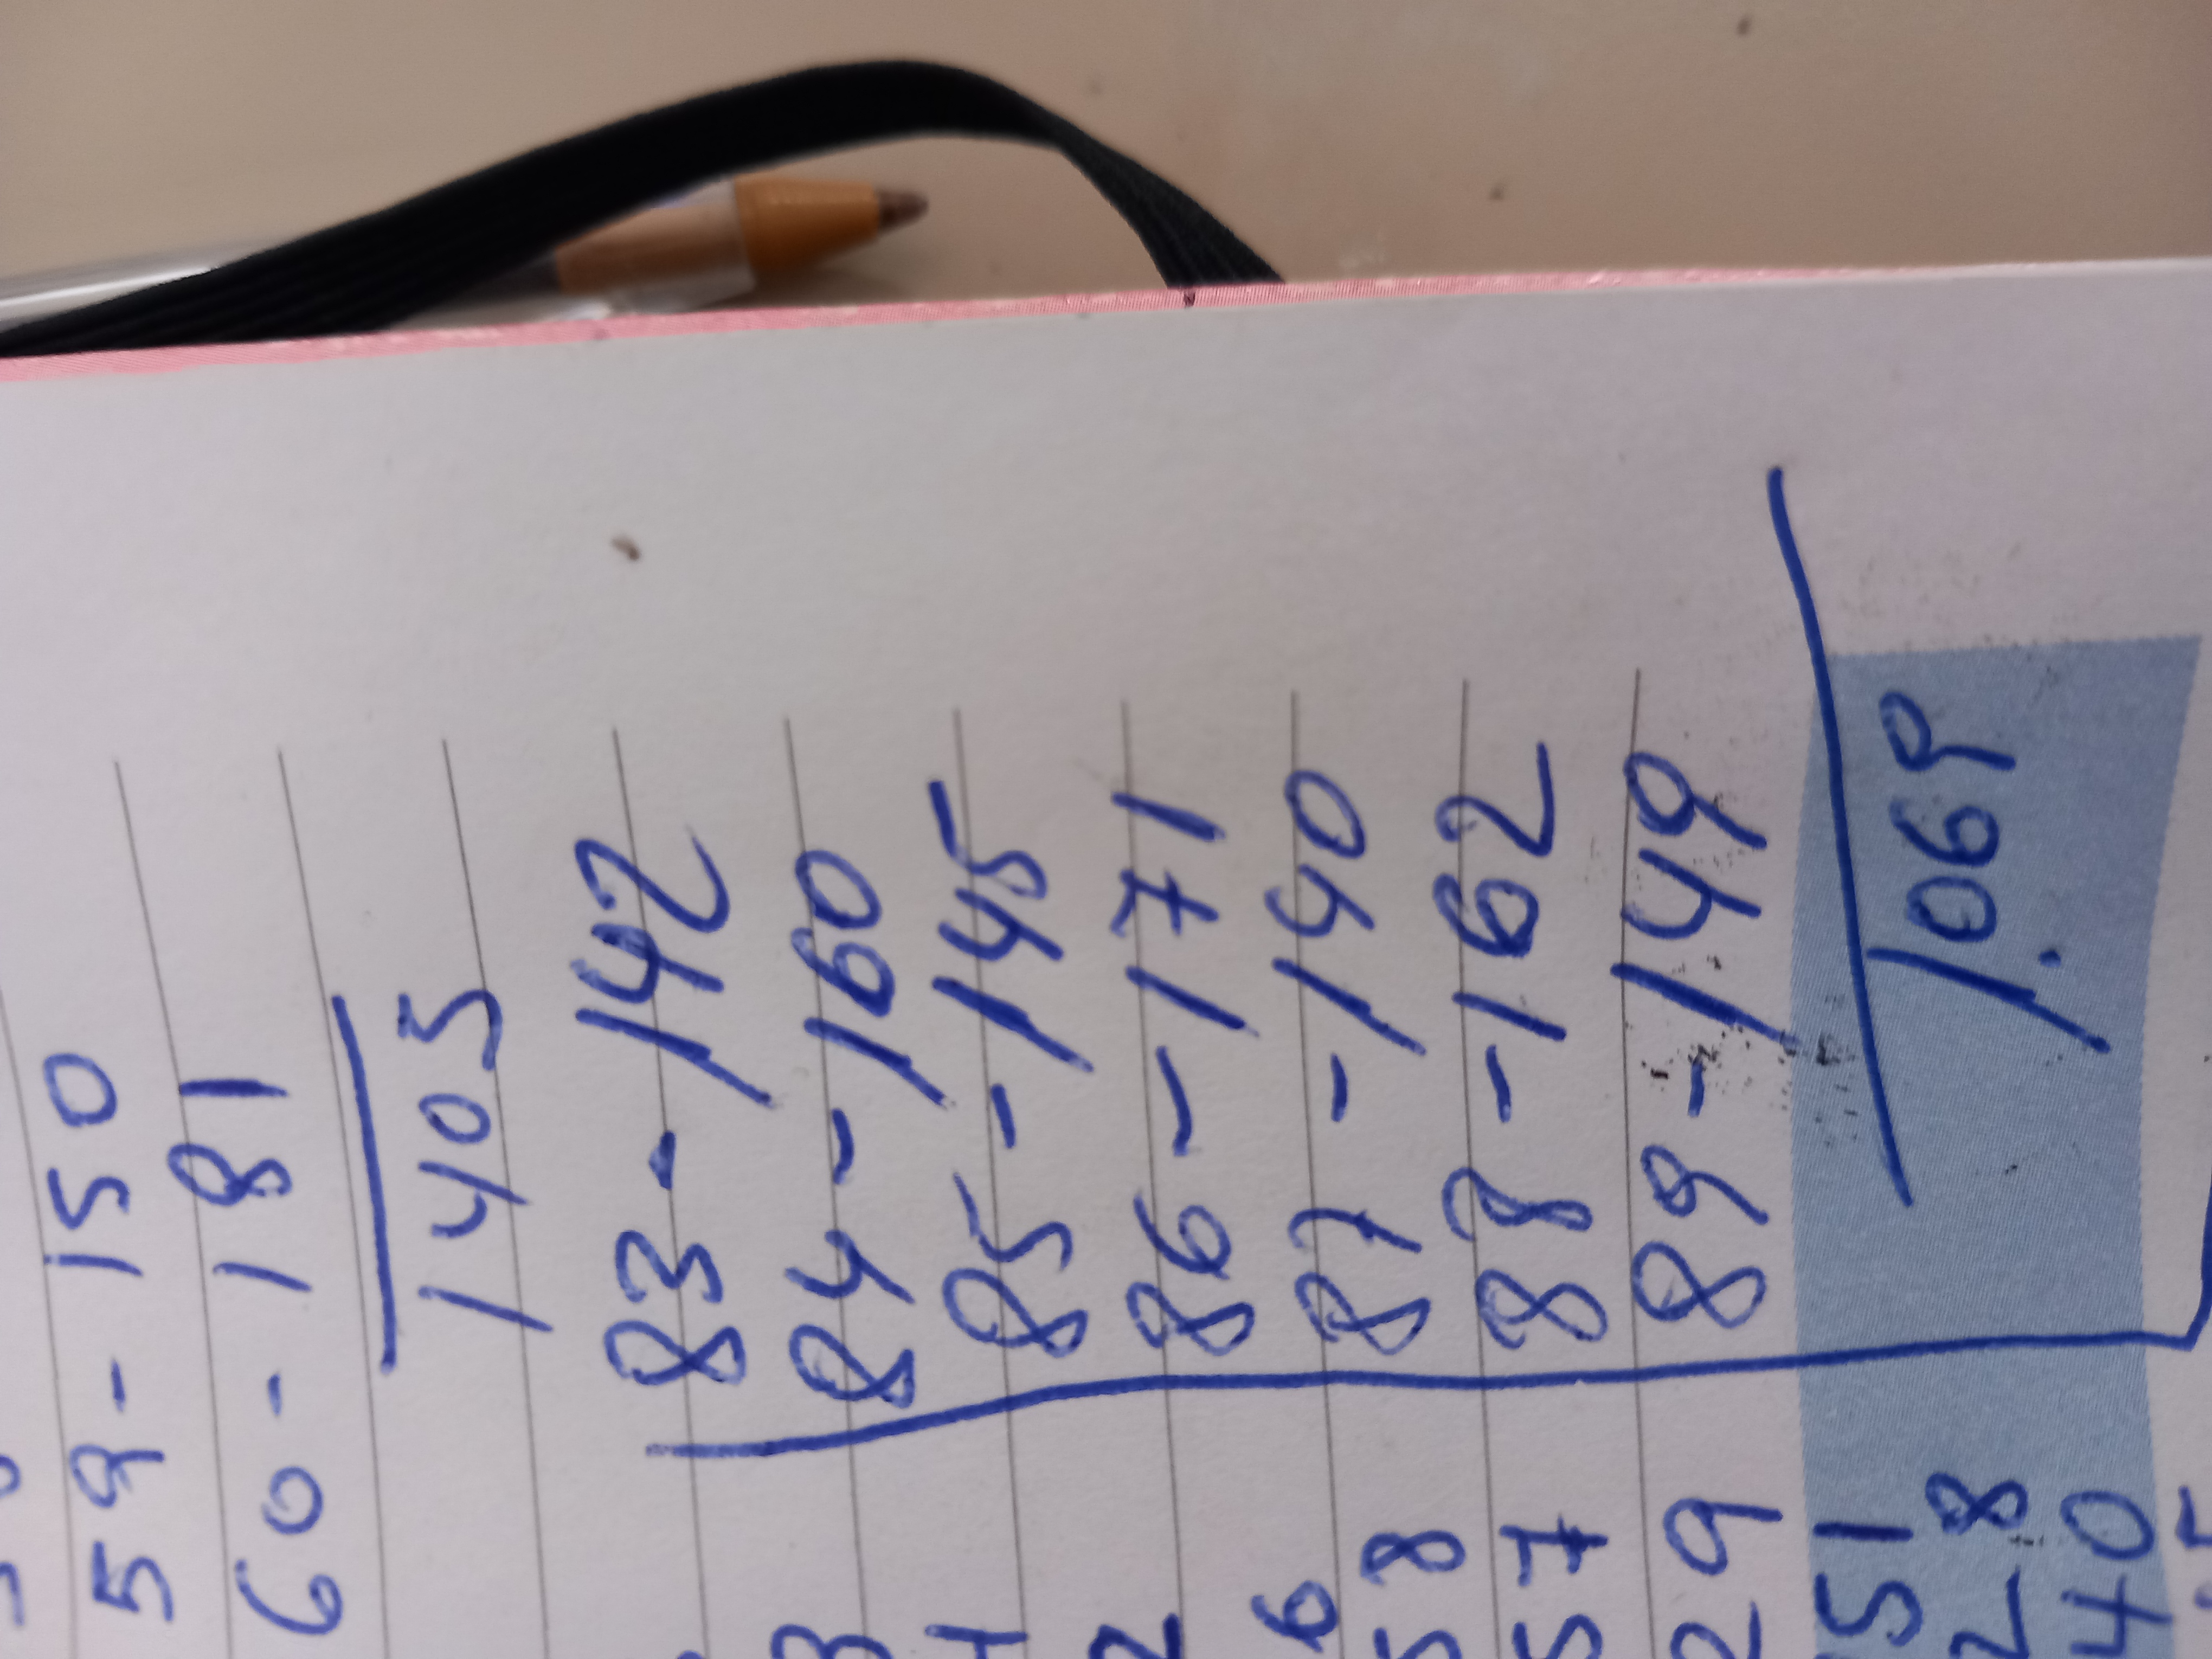 59 - 150
60 - 181
1405
83 - 142
84 - 160
85 - 145
86 - 171
87 - 140
88 - 162
89 - 149
1.069
58
57
29
51
28
40